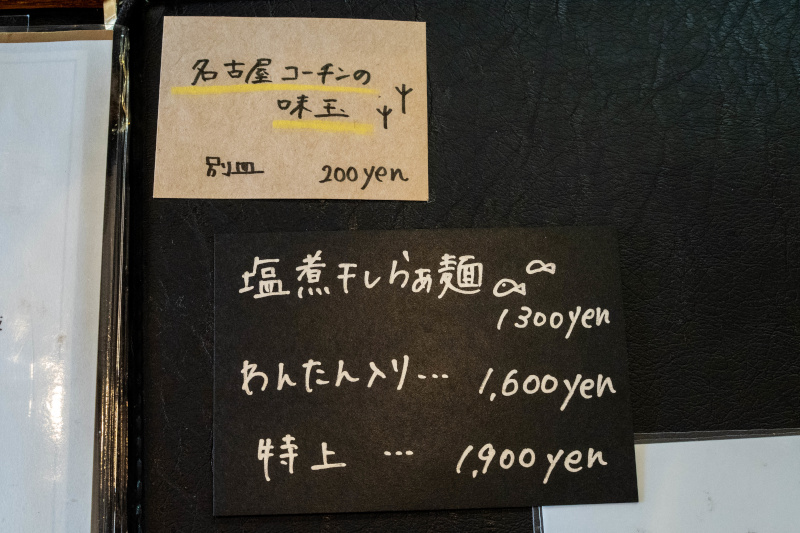 名古屋コーチンの
味玉
別皿 200yen
塩煮干しらぁ麺
1300yen
わんたん入り… 1,600yen
特上 … 1,900yen